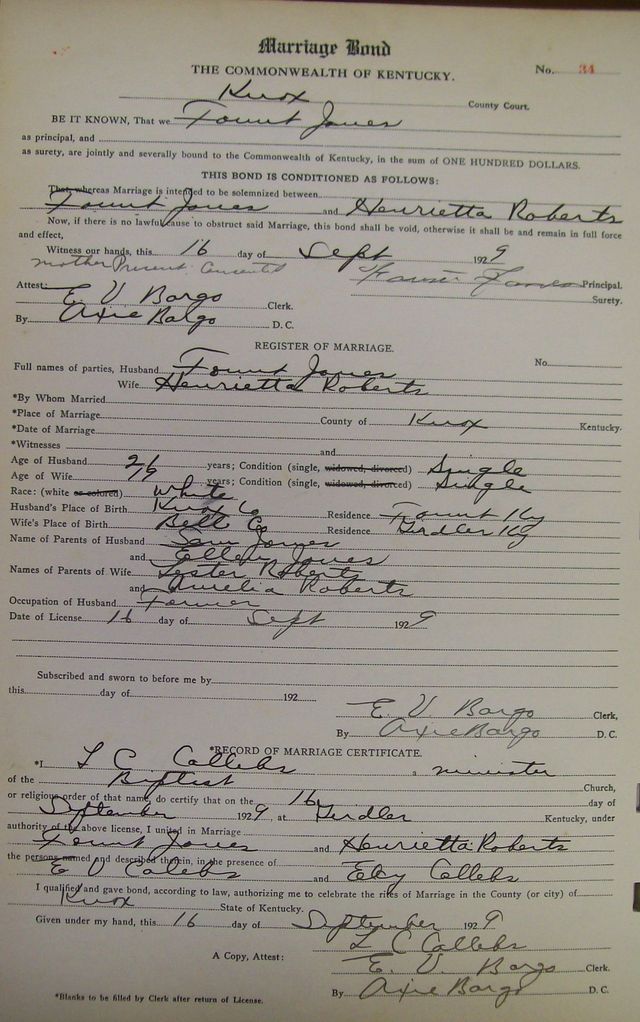 Marriage Bond
THE COMMONWEALTH OF KENTUCKY. No. 34
Knox County Court.
BE IT KNOWN, That we Fount Jones
as principal, and
as surety, are jointly and severally bound to the Commonwealth of Kentucky, in the sum of ONE HUNDRED DOLLARS.
THIS BOND IS CONDITIONED AS FOLLOWS:
That whereas Marriage is intended to be solemnized between
Fount Jones and Henrietta Roberts
Now, if there is no lawful cause to obstruct said Marriage, this bond shall be void, otherwise it shall be and remain in full force
and effect,
Witness our hands, this 16 day of Sept 1929
mother Present Consented
Fount Jones Principal.
Attest: E V Bargo Clerk. Surety.
By Axie Bargo D. C.
REGISTER OF MARRIAGE.
Full names of parties, Husband Fount Jones No.
Wife Henrietta Roberts
*By Whom Married
*Place of Marriage County of Knox Kentucky.
*Date of Marriage
*Witnesses and
Age of Husband 26 years; Condition (single, widowed, divorced) Single
Age of Wife years; Condition (single, widowed, divorced) Single
Race: (white or colored) white
Husband's Place of Birth Knox Co Residence Fount Ky
Wife's Place of Birth Bell Co Residence Girdler Ky
Name of Parents of Husband Sam Jones
and Ellen Jones
Names of Parents of Wife Lester Roberts
and Amelia Roberts
Occupation of Husband Farmer
Date of License 16 day of Sept 1929
Subscribed and sworn to before me by
this day of 192
E. V Bargo Clerk,
By Axie Bargo D. C.
*RECORD OF MARRIAGE CERTIFICATE.
*I L C Callebs a minister
of the Baptist Church,
or religious order of that name, do certify that on the 16 day of
September 1929, at Girdler Kentucky, under
authority of the above license, I united in Marriage
Fount Jones and Henrietta Roberts
the persons named and described therein, in the presence of
E V Callebs and Callebs
I qualified and gave bond, according to law, authorizing me to celebrate the rites of Marriage in the County (or city) of
Knox State of Kentucky.
Given under my hand, this 16 day of September 1929
L C Callebs
A Copy, Attest: E. V. Bargo Clerk.
By Axie Bargo D. C.
*Blanks to be filled by Clerk after return of License.